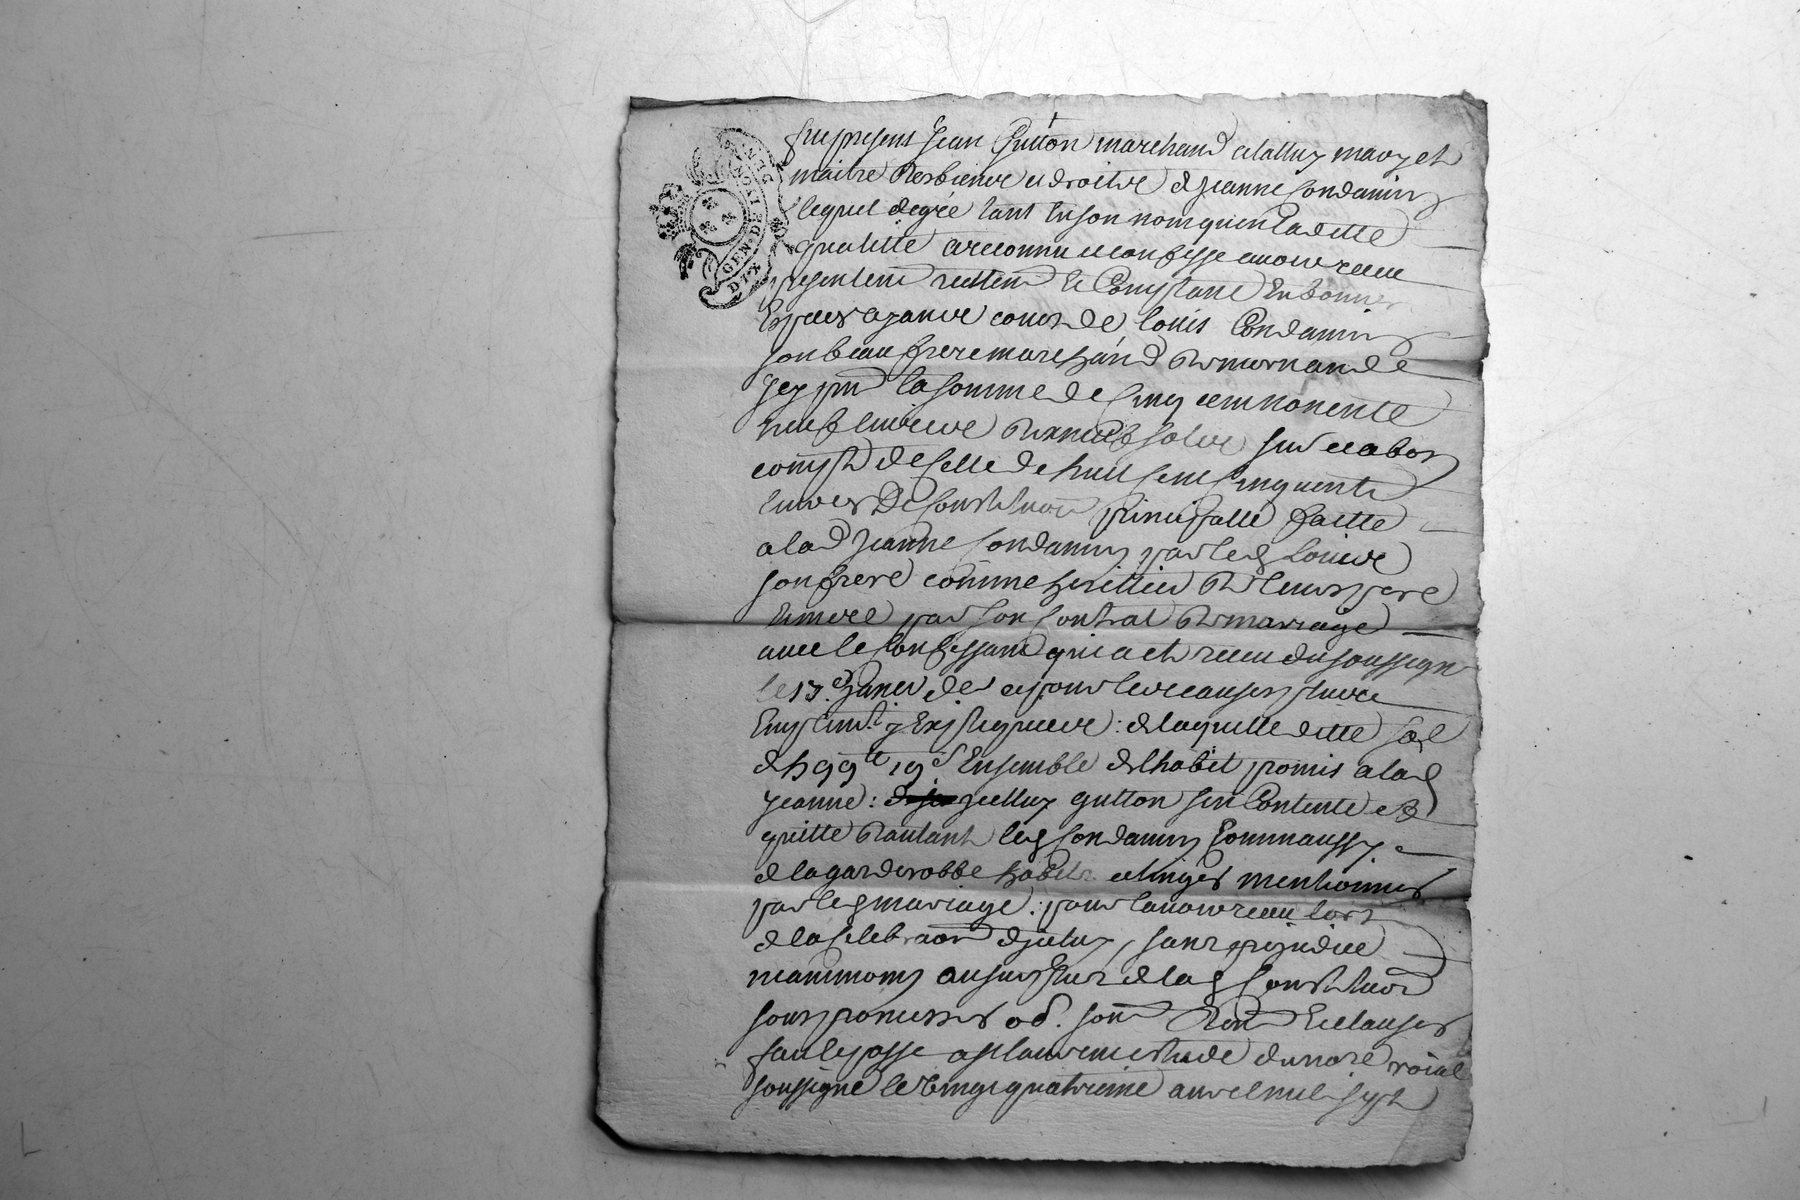 GEN. DE LION
fut present Jean Gutton marchand
maitre des biens et droits de Jeanne Condamin
lequel de gre tant en son nom quen ladette
qualitte a reconnu et confesse avoir receu
presentem reellem et Comptant En bonnes
Especes ayants cours de louis Condamin
son beau frere marchand de mornand
la somme de Cinq cent nonente
neuf livres dixneuf sols sur et a bon
compte de Celle de huit Cent Cinquente
livres De Constituon principalle faitte
a lad Jeanne Condamin par led Louis
son frere comme heritier de leurs pere
et mere par son Contrat de mariage
avec le Confessant qui a ete receu du soussigne
le 13e Janer der et pour les causes
de laquelle ditte
de 599 lt 19 s Ensemble de lhabit promis a lad
Jeanne: icelluy gutton sen Contente et
quitte dautant led Condamin Comm aussy
de la garderobbe habits et linges mentionnes
par led mariage: pour lavoir receu lors
de la Celebraon diceluy, sans prejudice
neanmoins au surplus de lad Constituon
sous promesses ob. som Renon et clauses
fait et passe estude du nore roial
soussigne le vingt quatrieme avril mil sept